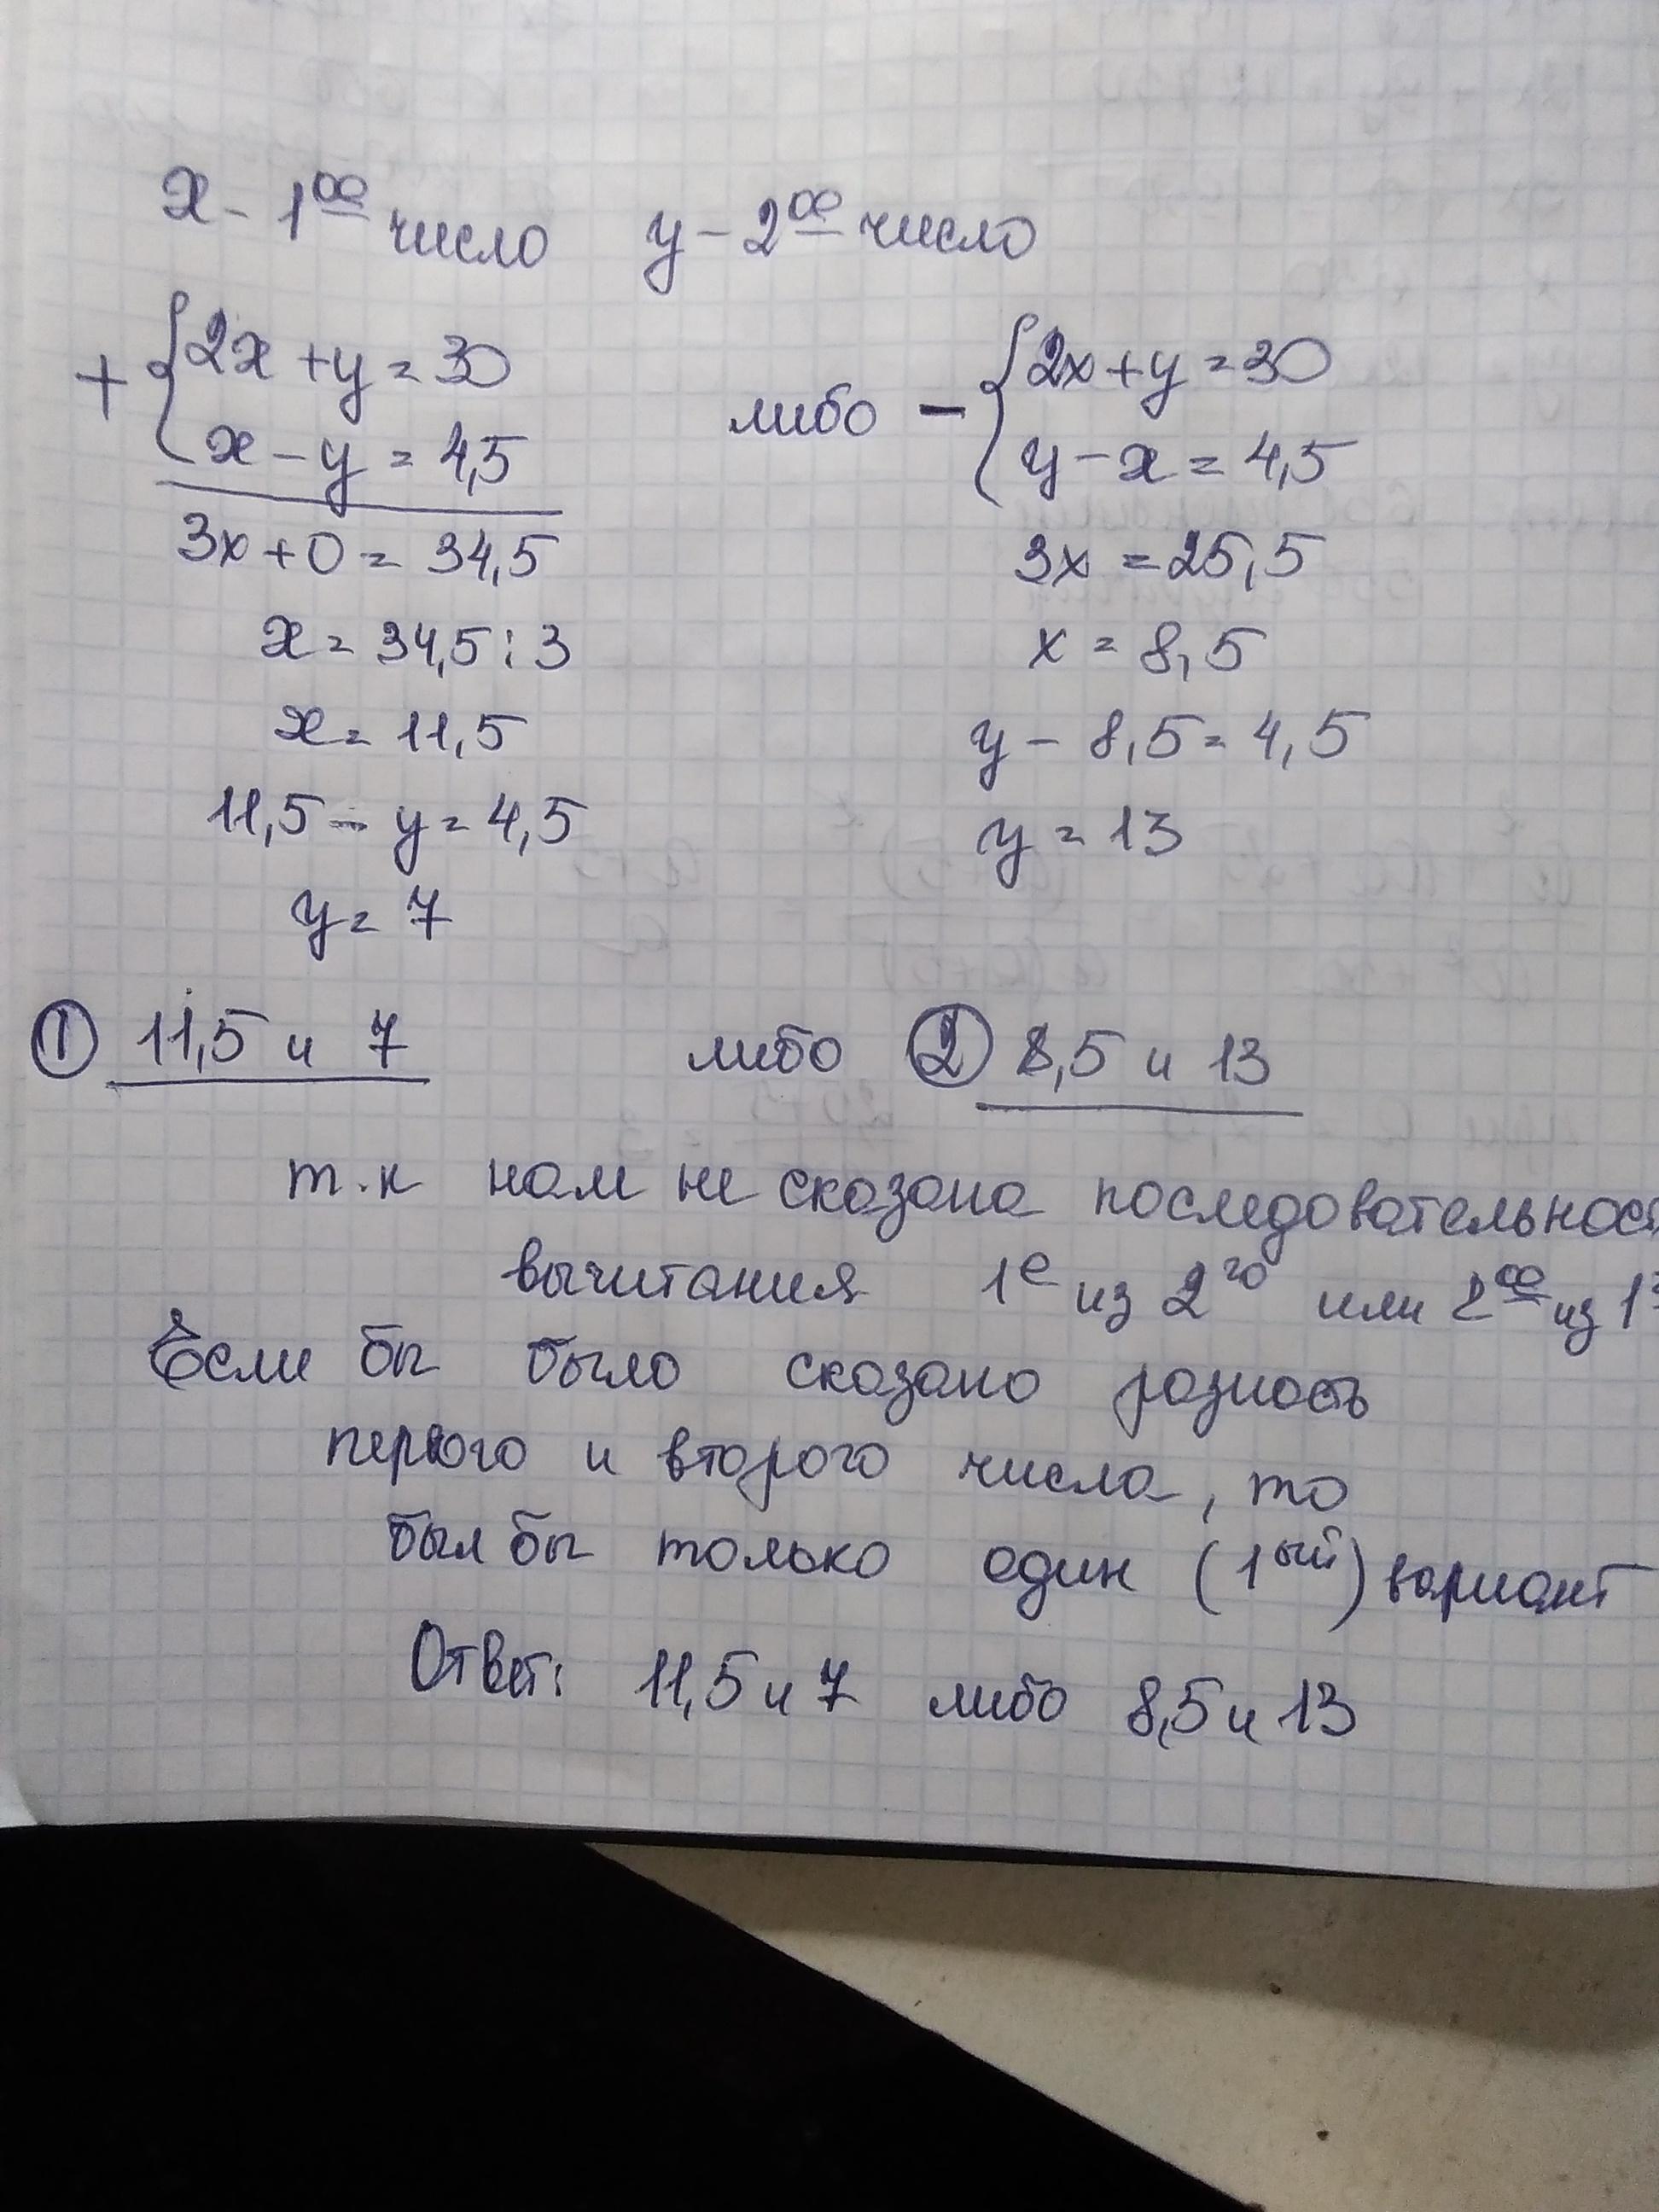 x - 1ое число y - 2ое число
+ { 2x + y = 30 либо - { 2x + y = 30
x - y = 4,5 y - x = 4,5
3x + 0 = 34,5 3x = 25,5
x = 34,5 : 3 x = 8,5
x = 11,5 y - 8,5 = 4,5
11,5 - y = 4,5 y = 13
y = 7
① 11,5 и 7 либо ② 8,5 и 13
т.к нам не сказана последовательнос
вычитания 1е из 2го или 2ое из 1
Если бы было сказано разность
первого и второго числа, то
был бы только один (1ый) вариант
Ответ: 11,5 и 7 либо 8,5 и 13